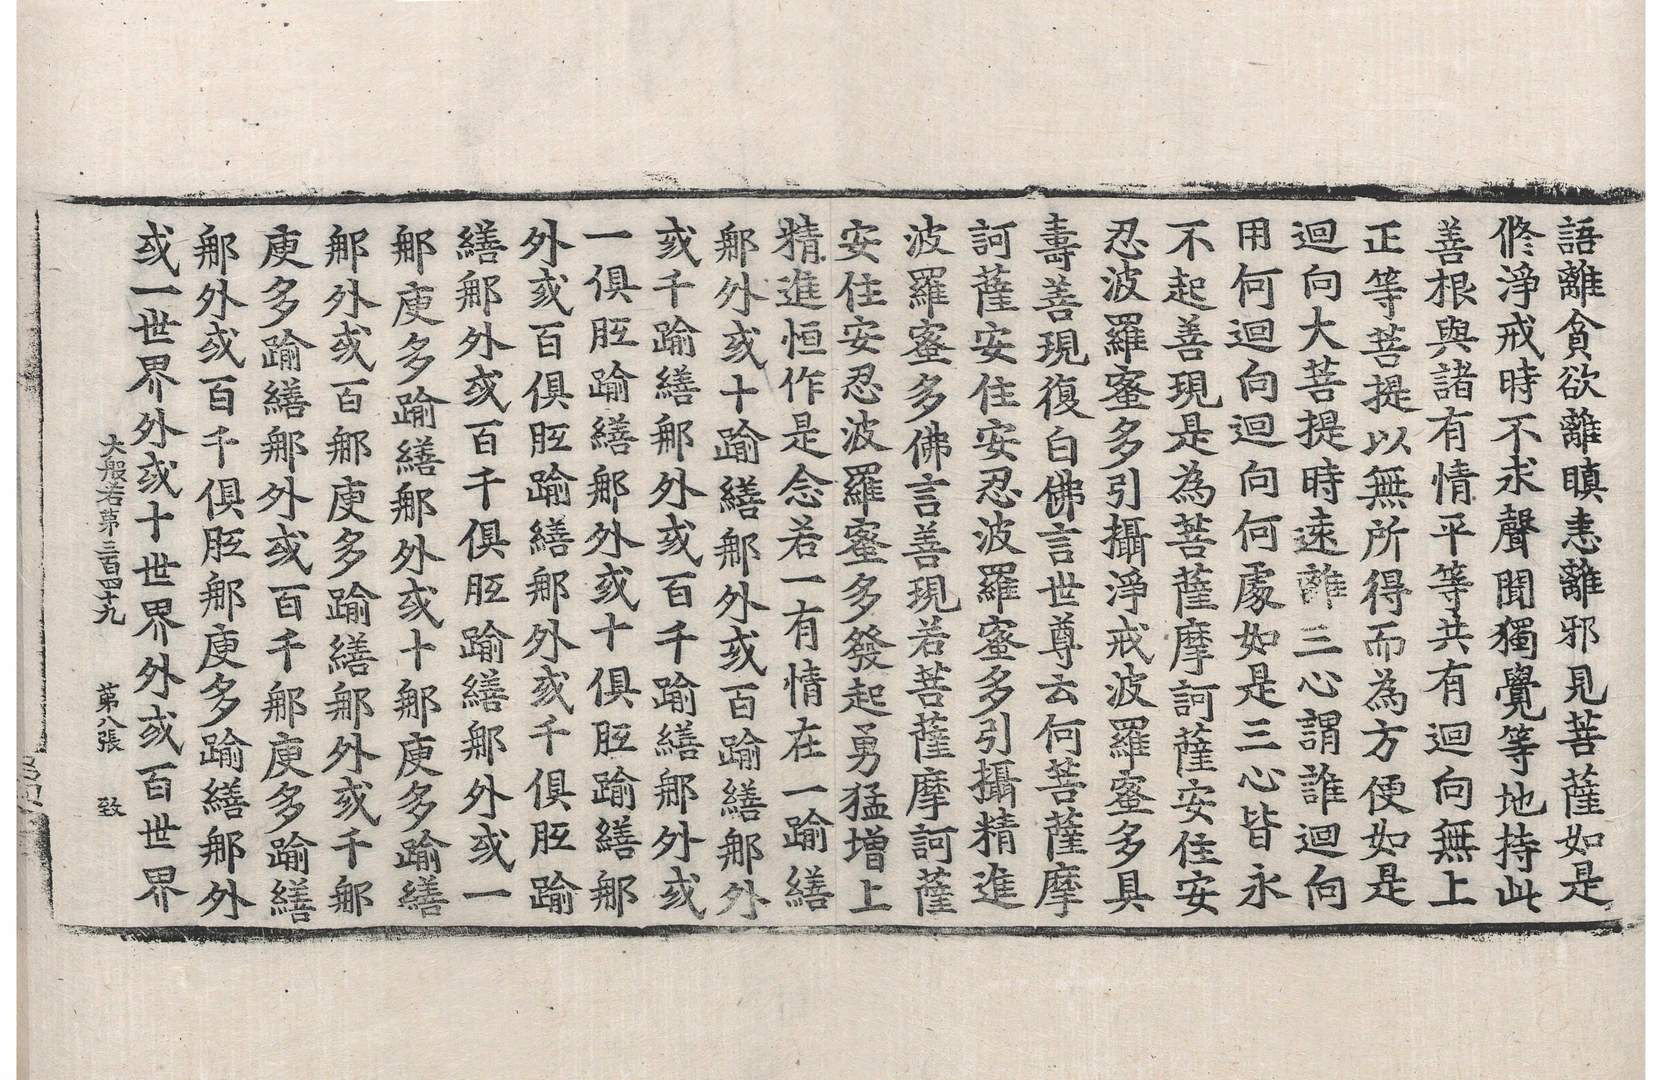 語離貪欲離瞋恚離邪見菩薩如是
修淨戒時不求聲聞獨覺等地持此
善根與諸有情平等共有迴向無上
正等菩提以無所得而為方便如是
迴向大菩提時遠離三心謂誰迴向
用何迴向迴向何處如是三心皆永
不起善現是為菩薩摩訶薩安住安
忍波羅蜜多引攝淨戒波羅蜜多具
壽善現復白佛言世尊云何菩薩摩
訶薩安住安忍波羅蜜多引攝精進
波羅蜜多佛言善現若菩薩摩訶薩
安住安忍波羅蜜多發起勇猛增上
精進恒作是念若一有情在一踰繕
那外或十踰繕那外或百踰繕那外
或千踰繕那外或百千踰繕那外或
一俱胝踰繕那外或十俱胝踰繕那
外或百俱胝踰繕那外或千俱胝踰
繕那外或百千俱胝踰繕那外或一
那庾多踰繕那外或十那庾多踰繕
那外或百那庾多踰繕那外或千那
庾多踰繕那外或百千那庾多踰繕
那外或百千俱胝那庾多踰繕那外
或一世界外或十世界外或百世界
大般若第三百四十九 第八張 致